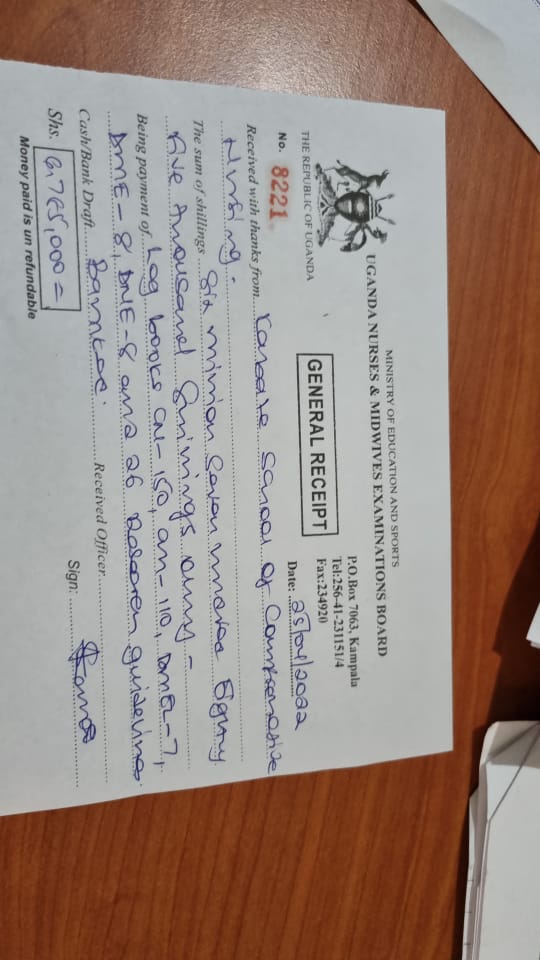 MINISTRY OF EDUCATION AND SPORTS
UGANDA NURSES & MIDWIVES EXAMINATIONS BOARD
P.O.Box 7063, Kampala
Tel:256-41-231151/4
Fax:234920
THE REPUBLIC OF UGANDA
GENERAL RECEIPT
No. 8221
Date: 25/04/2022
Received with thanks from Kabale School of Comprehensive
Nursing.
The sum of shillings Six million Seven hundred Eighty
five thousand shillings only -
Being payment of Log books CN-150, CM-110, DME-7,
DME-8, DNE-8 and 26 Research guidelines.
Cash/Bank Draft Banked. Received Officer
Shs. 6,785,000=
Sign:
Money paid is un refundable